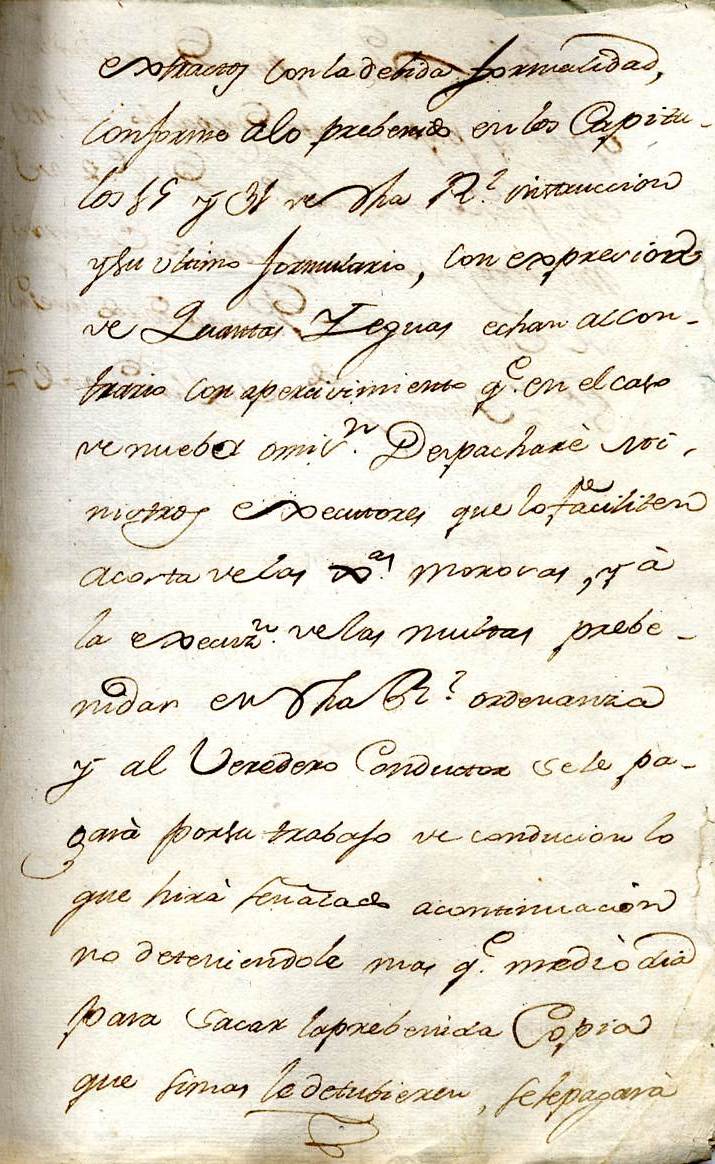 extractos con la debida formalidad,
conforme alo prebenido en los Capitu-
los 15 y 31 de dha Rl. instruccion
y su ultimo formulario, con exprecion
de Quantas Yeguas echan al con-
trario con apercivimiento qe. en el caso
de nueba omisn. Despacharè mi-
nistros executores que lo faciliten
acosta de las xas. morosas, y à
la execuzn. de las multas prebe-
nidas en dha Rl. ordenanza
y al Veredero Conductor se le pa-
garà por su trabajo de conducion lo
que hirà señalado acontinuaciòn
no deteniendole mas qe. mediò dia
para sacar la prebenida Copia
que simas le detubieren, sele pagarà